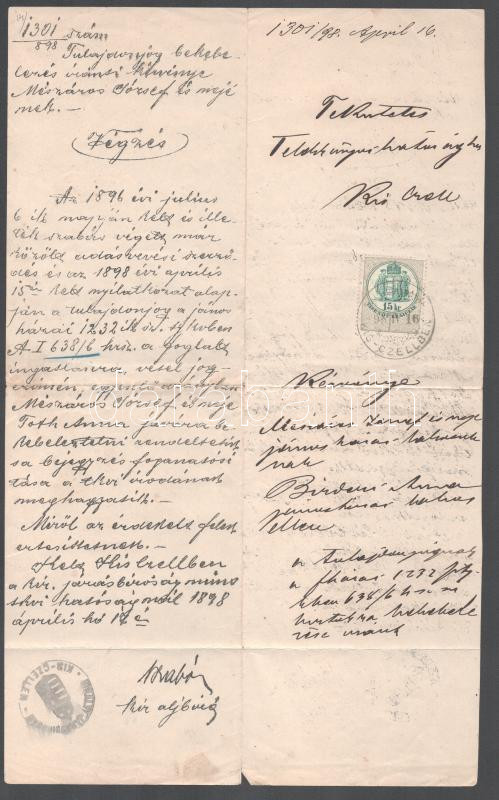 1301
898 szám
Tulajdonjog bekebe-
lezés iránti kérvénye
Mészáros József és nejé
nek. —
Végzés
Az 1896 évi julius
6 ik napján kelt és ille-
ték szabás végett már
közölt adásvevési szerző-
dés és az 1898 évi április
15én kelt nyilatkozat alap-
ján a tulajdonjog a jános
házai 1232 ik sz. tjkvben
A I 638/6 hrsz. a foglalt
ingatlanra, vétel jog-
czimén, egyenlő arányban
Mészáros József és neje
Toth Anna javára be-
kebeleztetni rendeltetik
s a bejegyzés foganatosi
tása a tkvi irodának
meghagyatik. —
Miről az érdekelt felek
értesittetnek. —
Kelt Kis Czellben
a kir. járásbiróság mint
tkvi hatóságnál 1898
április hó 16 án
Szabó
kir aljbiró
KIS-CZELLBEN
1301/98. April 16.
Tekintetes
Telekkönyvi hatóság
Kis Czell
15 kr
Kérvénye
Mészáros József és neje
jánosházai lakosok-
nak
Anna
jánosházai lakos
ellen
a tulajdonjognak
a jházai 1232 tjk-
vben 638/6 hrsz.
bekebele
zése iránt